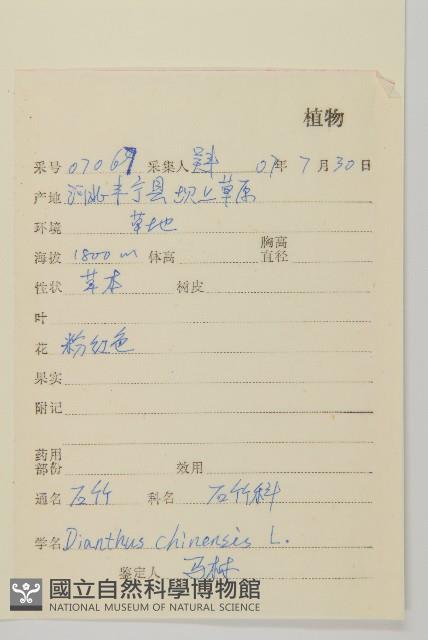 植物
采号 07069 采集人 07年 7月30日
产地 河北丰宁县坝上草原
环境 草地
海拔 1800 m 体高 胸高直径
性状 草本 树皮
叶
花 粉红色
果实
附记
药用部份 效用
通名 石竹 科名 石竹科
学名 Dianthus chinensis L.
鉴定人 马树
國立自然科學博物館
NATIONAL MUSEUM OF NATURAL SCIENCE